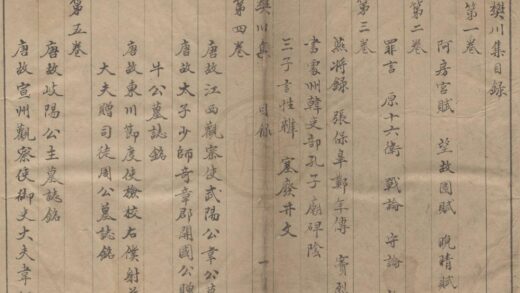 樊川集目錄
第一卷
阿房宮賦 望故園賦 晚晴賦
第二卷
罪言 原十六衛 戰論 守論
第三卷
燕將錄 張保皐鄭年傳 竇列
書處州韓吏部孔子廟碑陰
三子言性辯 塞廢井文
樊川集 目錄 一
第四卷
唐故江西觀察使武陽公韋公
唐故太子少師奇章郡開國公贈
牛公墓誌銘
唐故東川節度使檢校右僕射
大夫贈司徒周公墓誌銘
第五卷
唐故岐陽公主墓誌銘
唐故宣州觀察使御史大夫韋